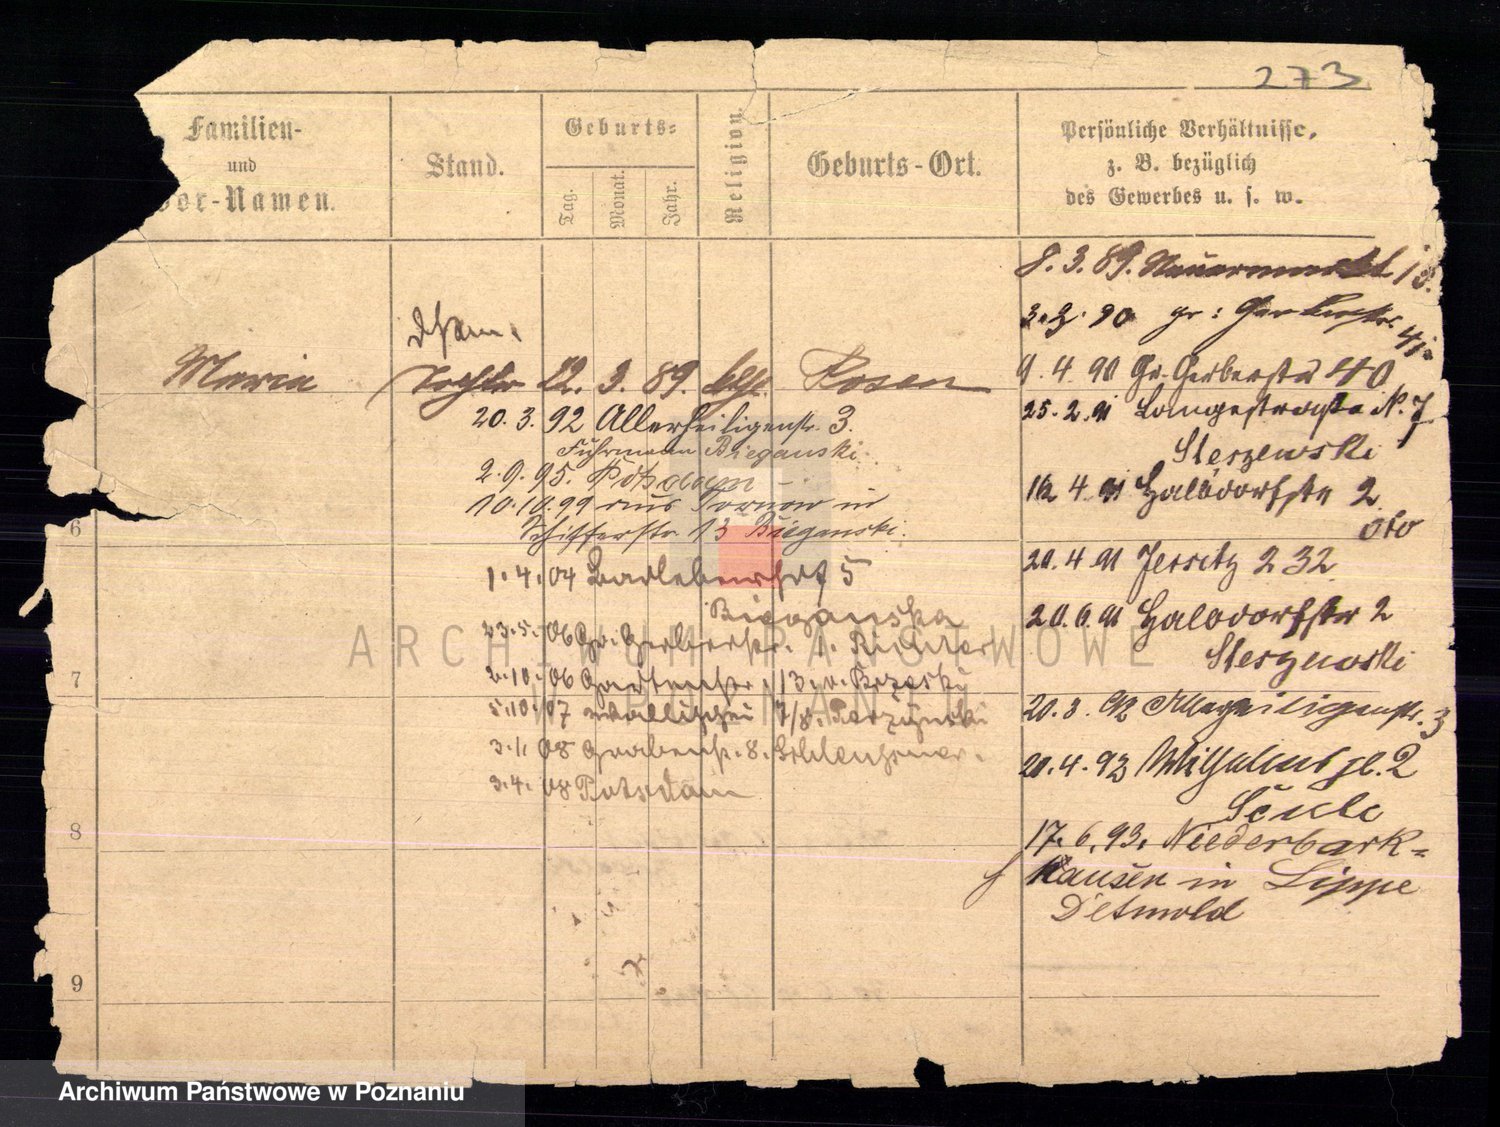 273
Familien-
und
or-Namen.
Stand.
Geburts-
Tag.
Monat.
Jahr.
Religion.
Geburts-Ort.
Persönliche Verhältnisse,
z. B. bezüglich
des Gewerbes u. s. w.
Maria
Tochter 12. 3. 89. Posen
20. 3. 92 Allerheiligenstr. 3.
Fuhrmann Bieganski.
2. 9. 95. Potsdam
10. 10. 99 aus in
Schifferstr 13 Bieganski.
1. 4. 04 5
Bieganska
23. 5. 06 Gr. Gerberstr. 1. Richter
2. 10. 06 Gartenstr. 13. v. Brzeski
5. 10. 07 Wallischei 7/8.
3. 1. 08 Grabenstr. 8.
3. 4. 08 Potsdam
8. 3. 89. Neuermarkt
3. 90 gr: Gerberstr. 41.
9. 4. 90 Gr. Gerberstr 40
25. 2. 91 Langestrasse N. 7
Sleszewski
16. 4. 91 Halbdorfstr 2
oto
20. 4. 91 Jersitz 232
20. 6. 91 Halbdorfstr 2
Sleszewski
20. 3. 92 Allerheiligenstr. 3
20. 4. 93 Wilhelmspl. 2
17. 6. 93. Niederbark-
hausen in Lippe
Detmold
6
7
8
9
ARCHIWUM PAŃSTWOWE
W POZNANIU
Archiwum Państwowe w Poznaniu